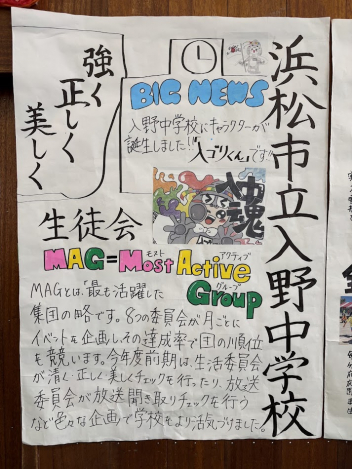 浜松市立入野中学校
強く
正しく
美しく
BIG NEWS
入野中学校にキャラクターが
誕生しました!!"入ゴリくん"です!!
入中魂
生徒会
MAG=Most Active
モスト
アクティブ
Group
グループ
MAGとは、最も活躍した
集団の略です。8つの委員会が月ごとに
イベントを企画しその達成率で団の順位
を競います。今年度前期は、生活委員会
が清く・正しく・美しくチェックを行ったり、放送
委員会が放送聞き取りチェックを行う
など色々な企画で学校をより活気づけました!